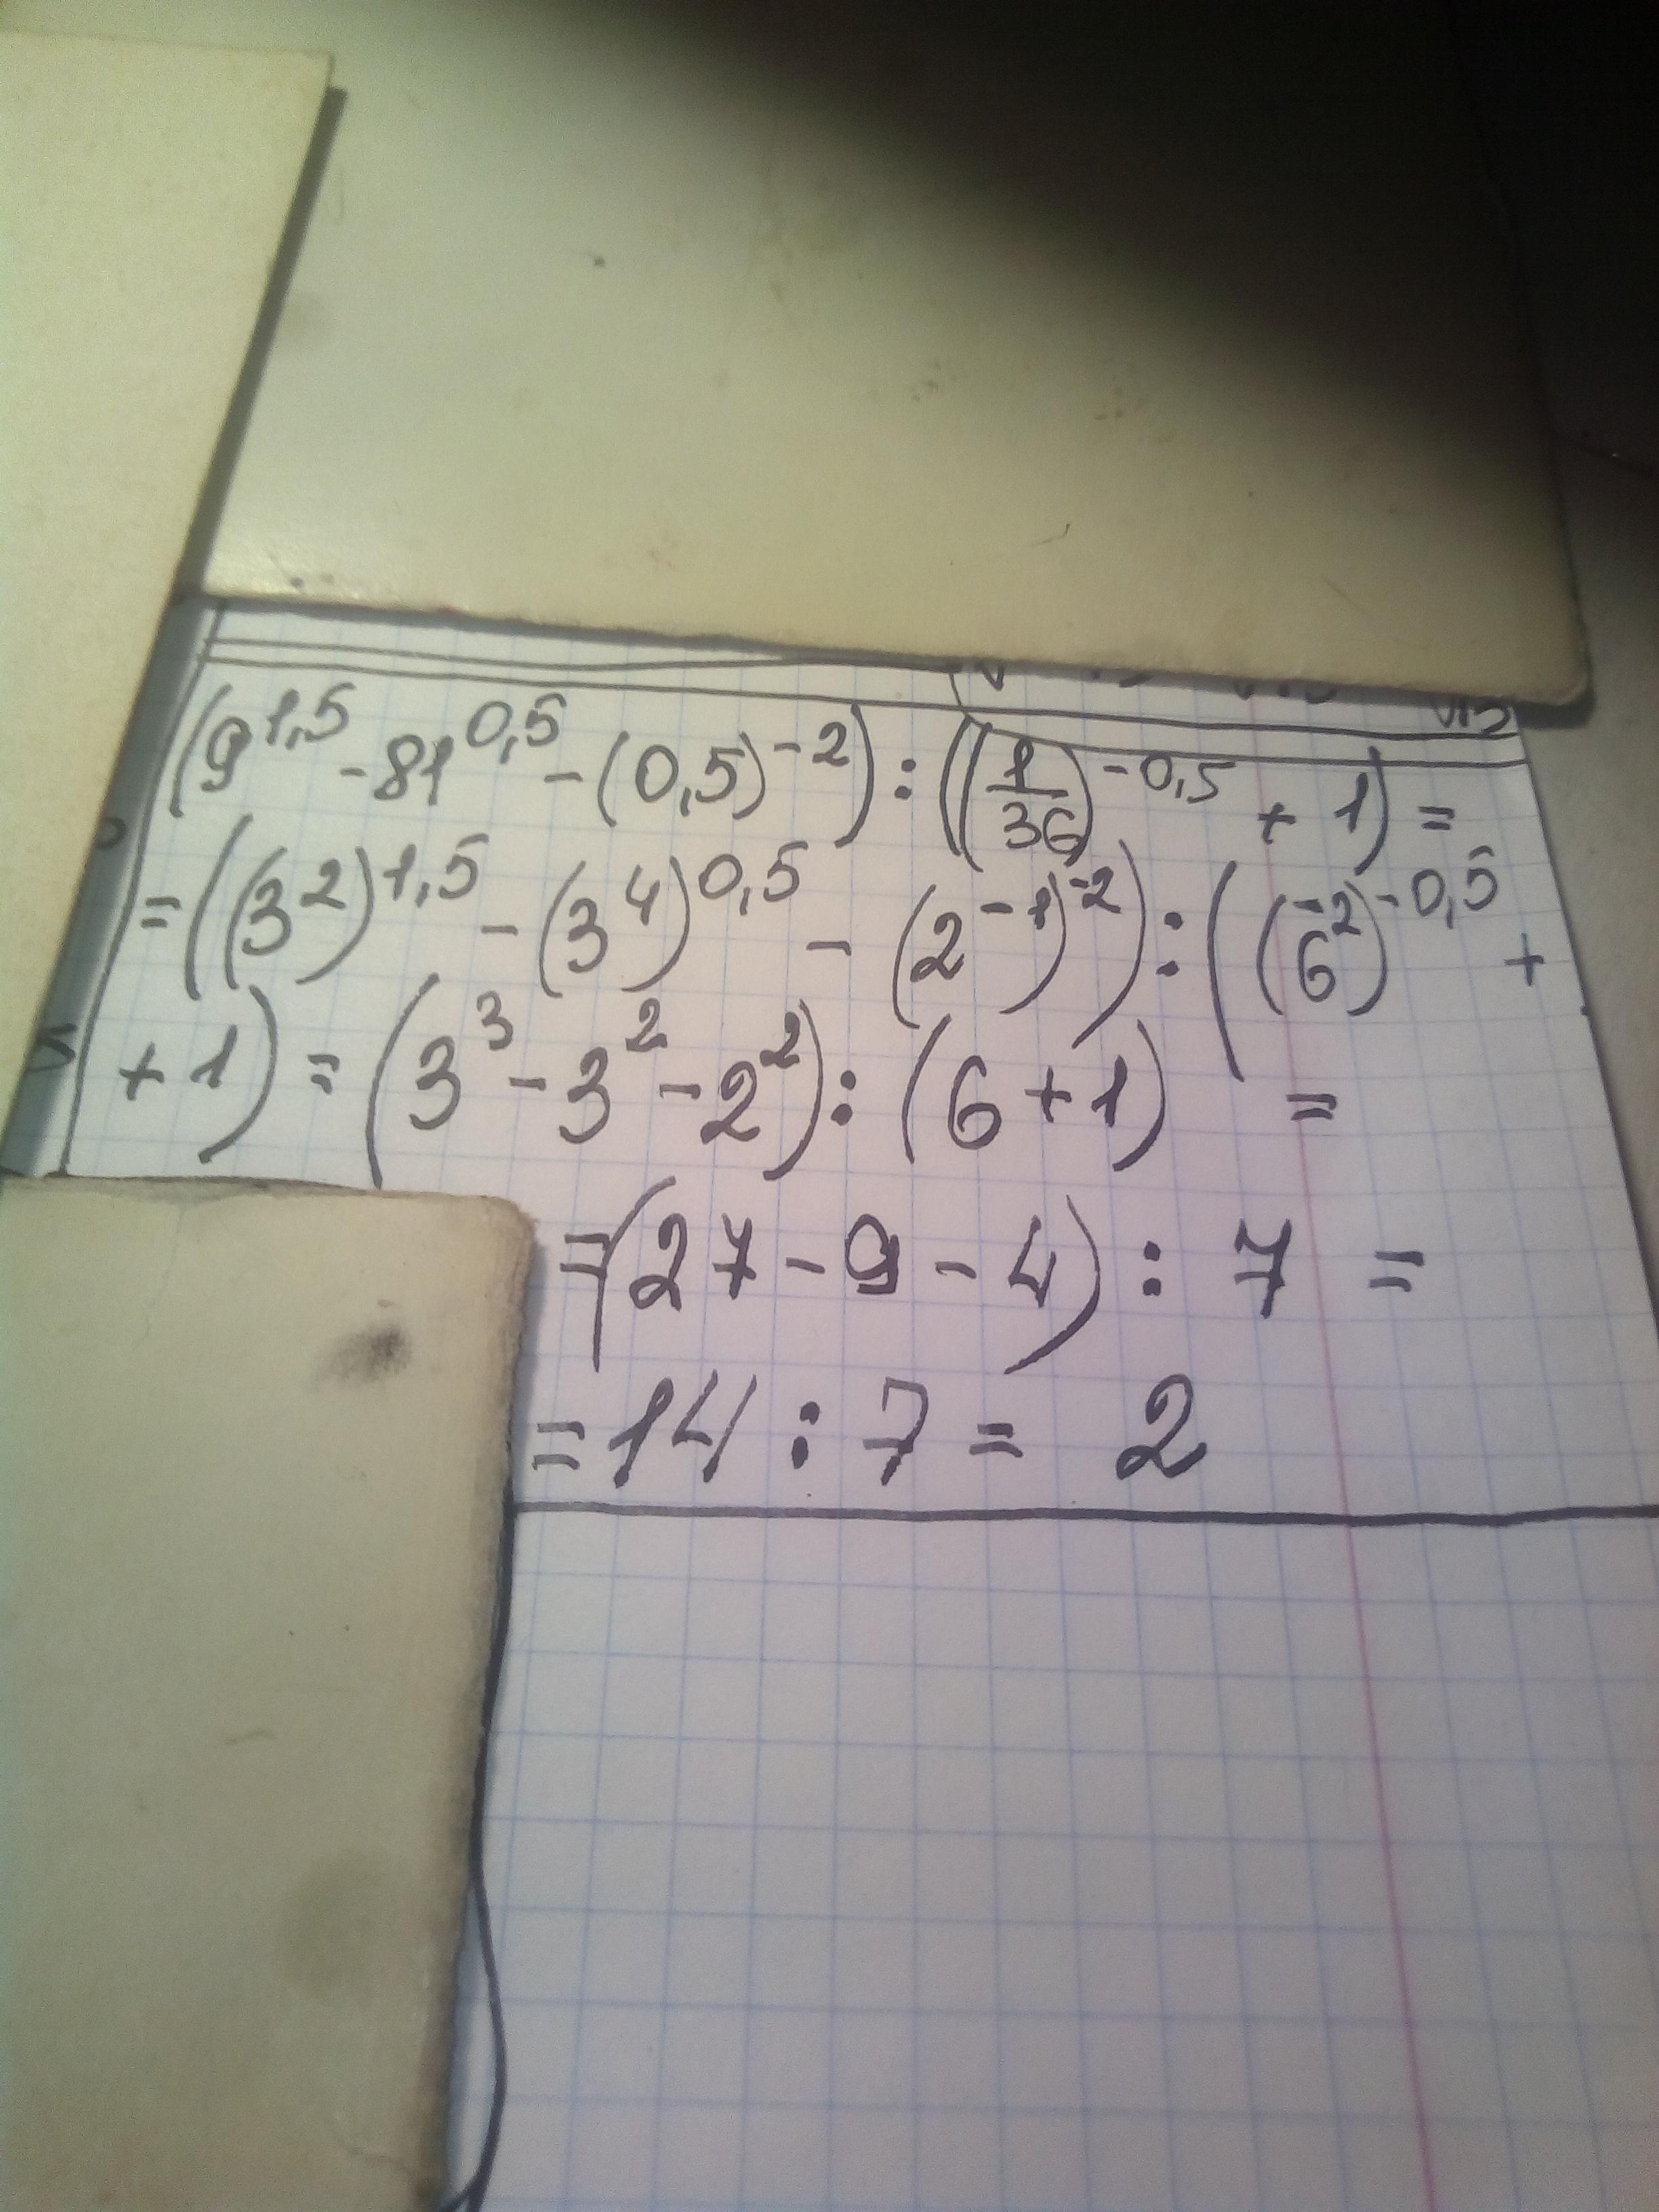 (9^1,5 - 81^0,5 - (0,5)^-2) : ((1/36)^-0,5 + 1) =
= ((3^2)^1,5 - (3^4)^0,5 - (2^-1)^-2) : ((6^-2)^-0,5 +
+ 1) = (3^3 - 3^2 - 2^2) : (6 + 1) =
= (27 - 9 - 4) : 7 =
= 14 : 7 = 2